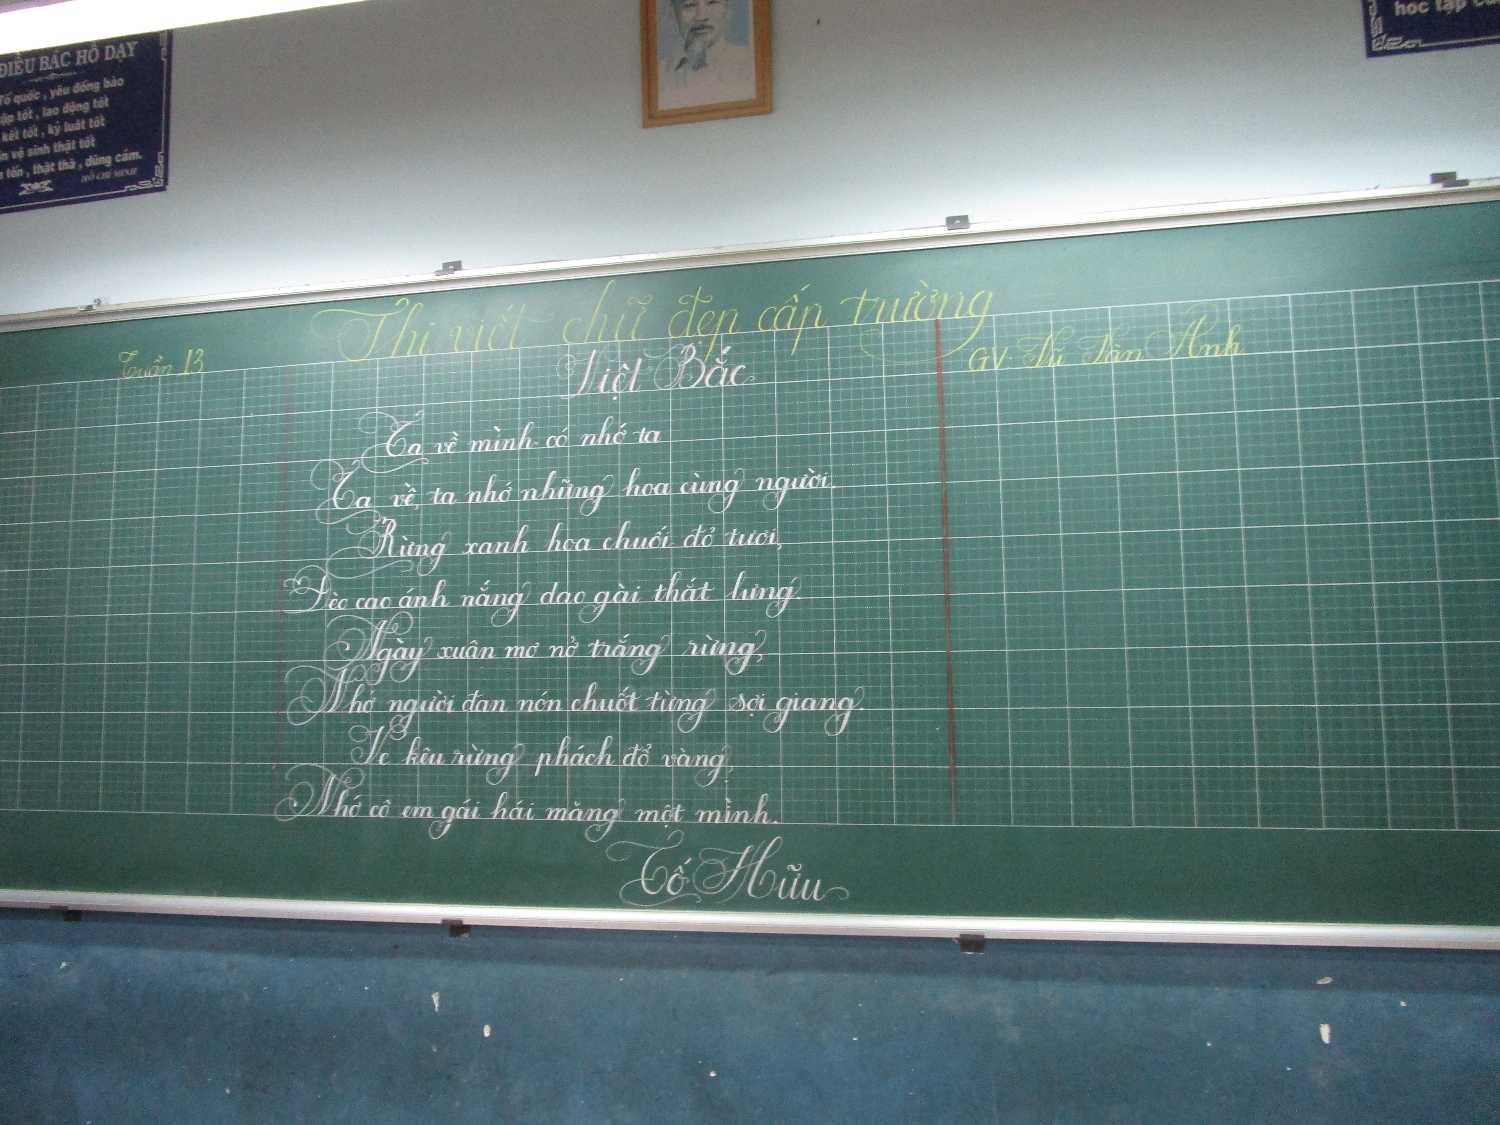 ĐIỀU BÁC HỒ DẠY
Tổ quốc, yêu đồng bào
tập tốt, lao động tốt
kết tốt, kỷ luật tốt
n vệ sinh thật tốt
tốn, thật thà, dũng cảm.
HỒ CHÍ MINH
học tập
Thi viết chữ đẹp cấp trường
Tuần 13
GV: Ánh
Việt Bắc
Ta về mình có nhớ ta
Ta về, ta nhớ những hoa cùng người.
Rừng xanh hoa chuối đỏ tươi,
Đèo cao ánh nắng dao gài thắt lưng.
Ngày xuân mơ nở trắng rừng,
Nhớ người đan nón chuốt từng sợi giang.
Ve kêu rừng phách đổ vàng,
Nhớ cô em gái hái măng một mình.
Tố Hữu